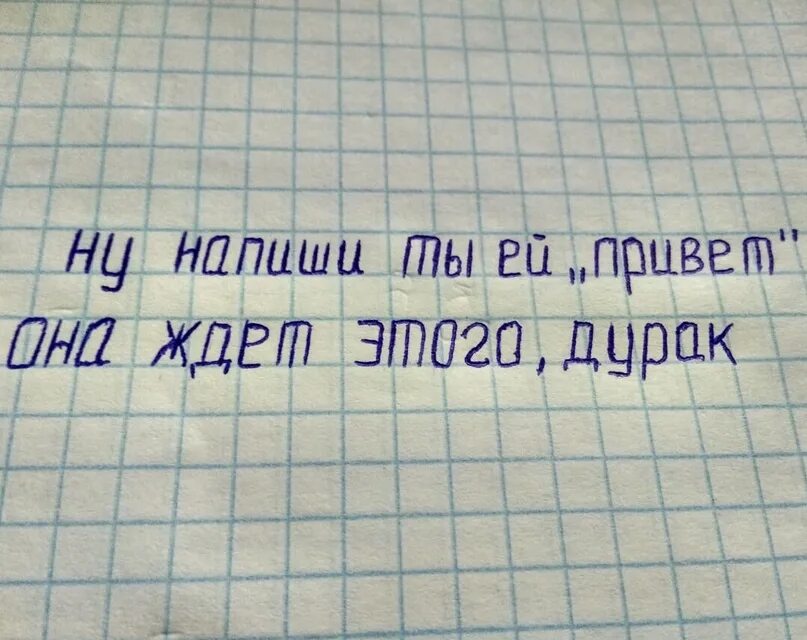 ну напиши ты ей „привет"
она ждет этого, дурак